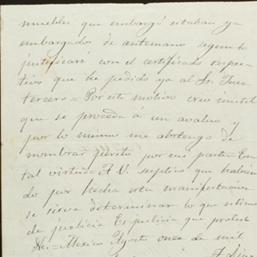 muebles que embargó estaban ya
embargados de antemano segun lo
justificaré con el certificado respec-
tivo que he pedido ya al Sr. Juez
tercero. Por este motivo creo inutil
que se proceda a un avalúo y
por lo mismo me abstengo de
nombrar perito por mi parte. En
tal virtud á V. suplico que habien-
do por hecha esta manifestacion
se sirva determinar lo que estime
de justicia. Es justicia que protesto
Mexico Agosto once de mil